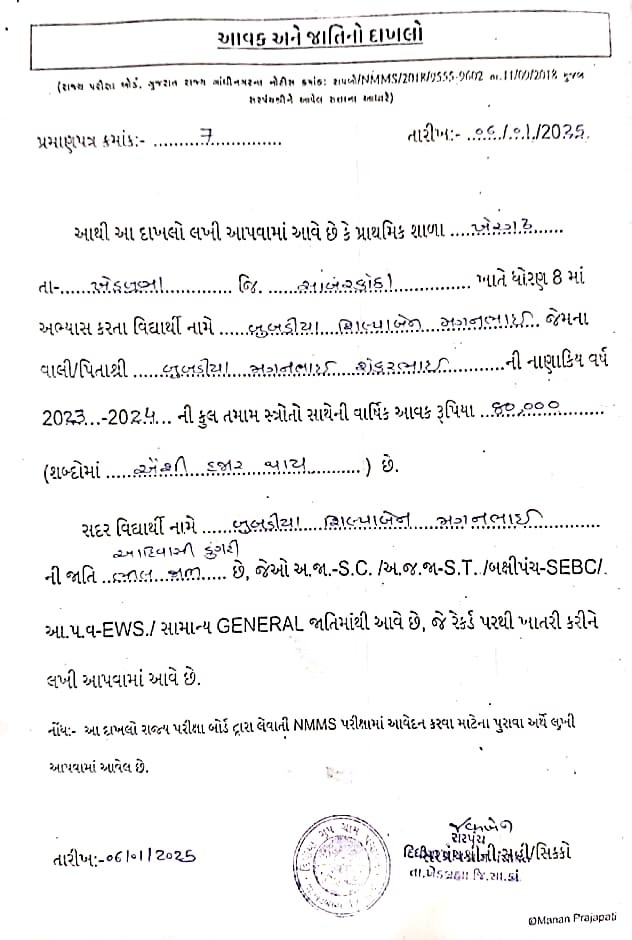 આવક અને જાતિનો દાખલો
(રાજ્ય પરીક્ષા બોર્ડ, ગુજરાત રાજ્ય ગાંધીનગરના નોટીસ ક્રમાંક: રાપબો/NMMS/2018/9555-9602 તા.11/09/2018 મુજબ
સરપંચશ્રીને આપેલ સત્તાના આધારે)
પ્રમાણપત્ર ક્રમાંક:- ..........7.............. તારીખ:- .૦૬./.૦૧./2025.
આથી આ દાખલો લખી આપવામાં આવે છે કે પ્રાથમિક શાળા ....ખેરગઢ......
તા-......ખેડબ્રહ્મા............. જિ. .....સાબરકાંઠા............... ખાતે ધોરણ 8 માં
અભ્યાસ કરતા વિદ્યાર્થી નામે ......બુબડીયા શિલ્પાબેન મગનભાઈ. જેમના
વાલી/પિતાશ્રી .....બુબડીયા મગનભાઈ શંકરભાઈ..........ની નાણાકિય વર્ષ
2023...-2024... ની કુલ તમામ સ્ત્રોતો સાથેની વાર્ષિક આવક રૂપિયા ..80,000...........
(શબ્દોમાં ......એંશી હજાર પુરા............) છે.
સદર વિદ્યાર્થી નામે ......બુબડીયા શિલ્પાબેન મગનભાઈ..............
આદિવાસી ડુંગરી
ની જાતિ ..ભીલ..... છે, જેઓ અ.જા.-S.C. /અ.જ.જા-S.T. /બક્ષીપંચ-SEBC/.
આ.પ.વ-EWS./ સામાન્ય GENERAL જાતિમાંથી આવે છે, જે રેકર્ડ પરથી ખાતરી કરીને
લખી આપવામાં આવે છે.
નોંધ:- આ દાખલો રાજ્ય પરીક્ષા બોર્ડ દ્વારા લેવાતી NMMS પરીક્ષામાં આવેદન કરવા માટેના પુરાવા અર્થે લખી
આપવામાં આવેલ છે.
સરપંચ
તારીખ:-06/01/2025 સરપંચશ્રીની સહી/સિક્કો
તા.ખેડબ્રહ્મા જિ.સા.કાં.
©Manan Prajapati